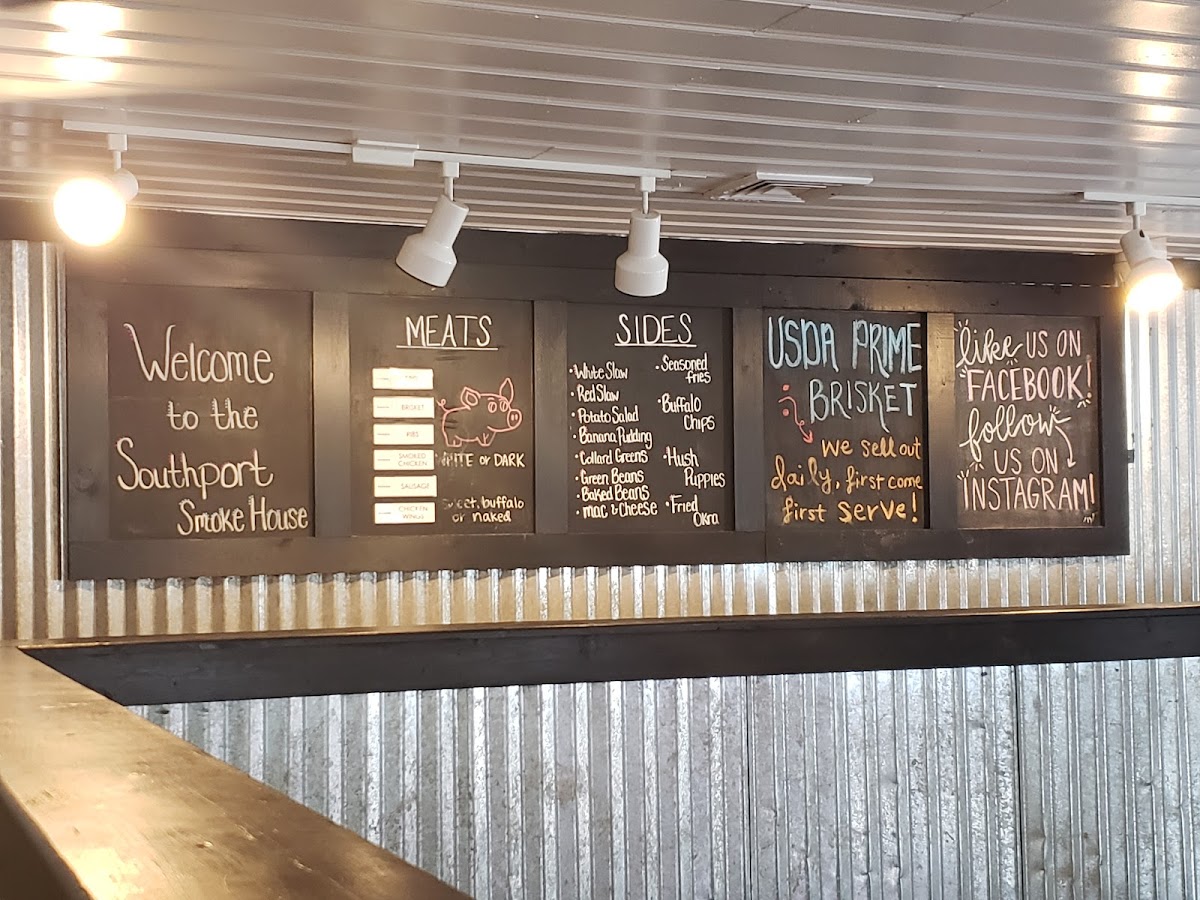 Welcome
to the
Southport
Smoke House
MEATS
BRISKET
RIBS
SMOKED
CHICKEN
WHITE or DARK
SAUSAGE
CHICKEN
WINGS
sweet, buffalo
or naked
SIDES
• White Slaw
• Red Slaw
• Potato Salad
• Banana Pudding
• Collard Greens
• Green Beans
• Baked Beans
• mac & Cheese
• Seasoned
fries
• Buffalo
Chips
• Hush
Puppies
• Fried
Okra
USDA PRIME
BRISKET
we sell out
daily, first come
first serve!
like US ON
FACEBOOK!
follow
US ON
INSTAGRAM!